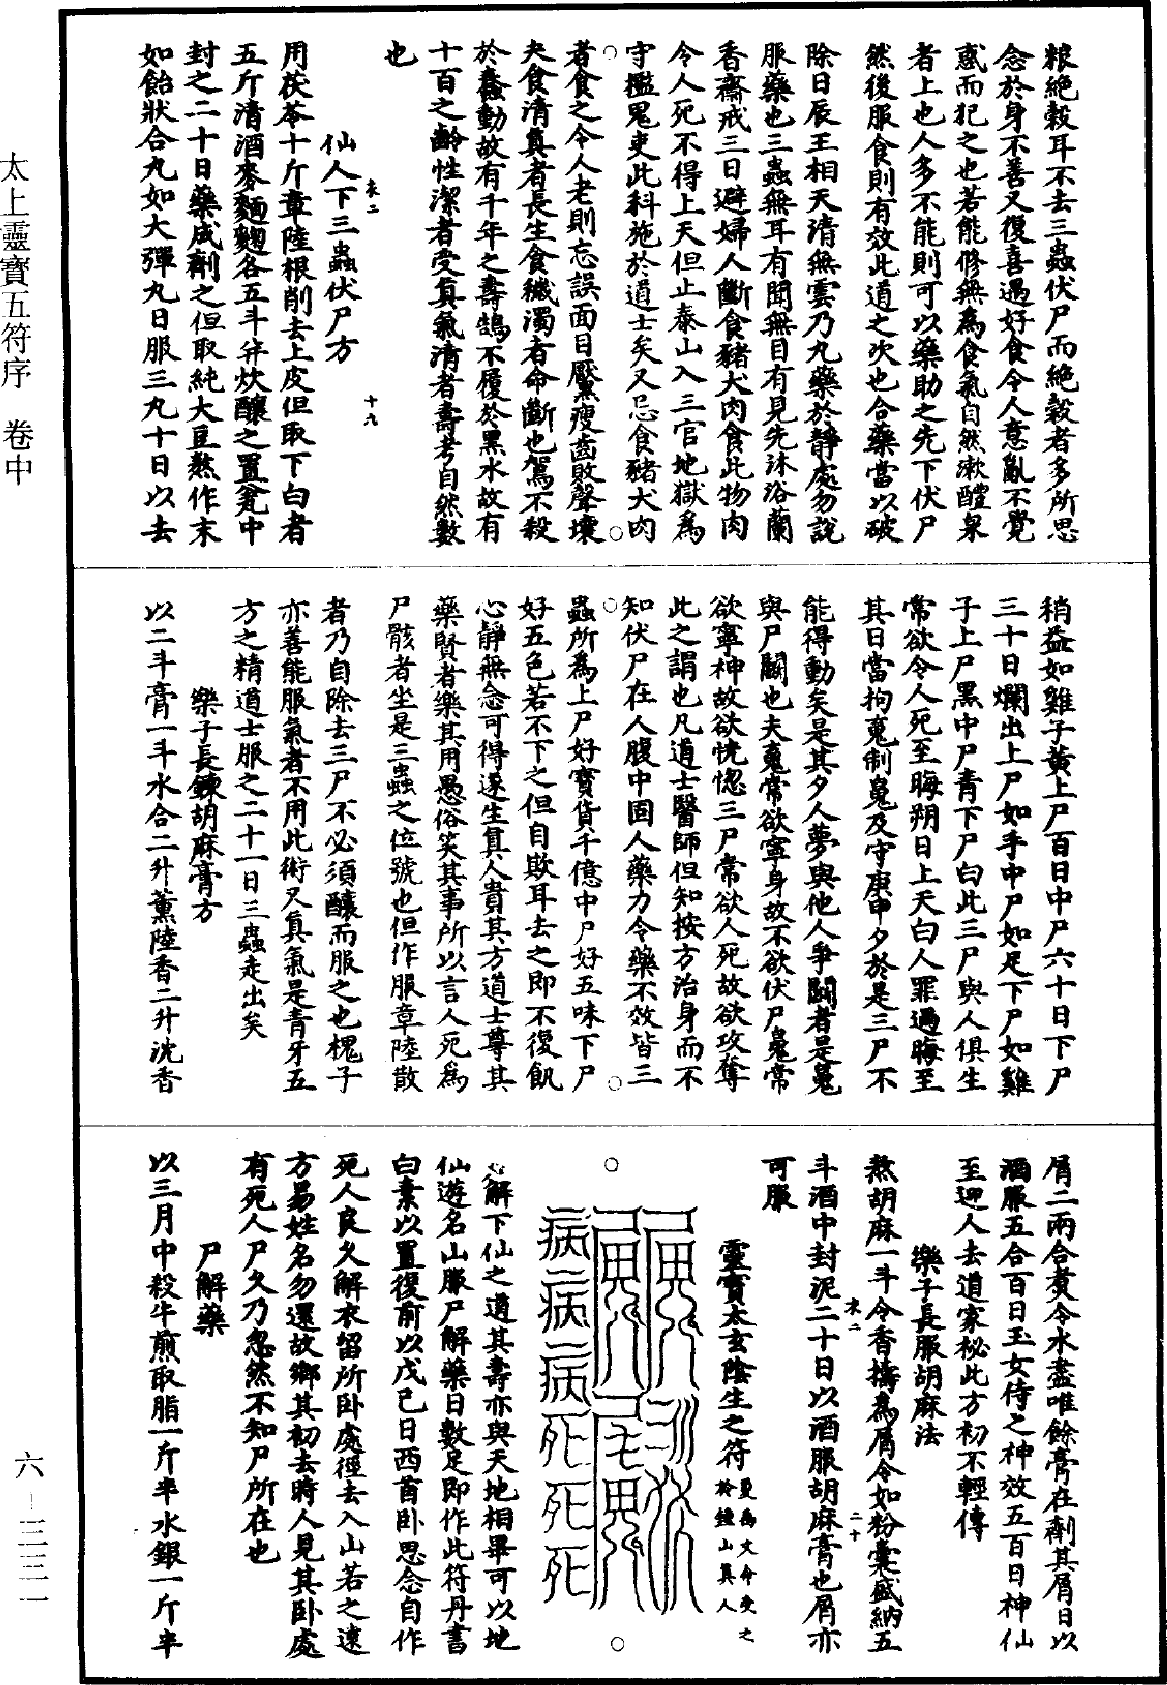 粮絶穀耳不去三蟲伏尸而絶穀者多所思
念於身不善又復喜遇好食令人意亂不覺
惑而犯之也若能修無為食氣自然漱醴泉
者上也人多不能則可以藥助之先下伏尸
然後服食則有效此道之次也合藥當以破
除日辰王相天清無雲乃丸藥於靜處勿說
服藥也三蟲無耳有聞無目有見先沐浴蘭
香齋戒三日避婦人斷食豬犬肉食此物肉
令人死不得上天但止泰山入三官地獄為
守檻鬼吏此科施於道士矣又忌食豬犬肉
者食之令人老則忘誤面目黶瘦齒敗聲壞
夫食清真者長生食穢濁者命斷也鴽不殺
於蠢動故有千年之壽鵠不履於黑水故有
十百之齡性潔者受真氣清者壽考自然數
也
仙人下三蟲伏尸方
衣二 十九
用茯苓十斤章陸根削去上皮但取下白者
五斤清酒麥麵麴各五斗并炊釀之置瓮中
封之二十日藥成劑之但取純大豆熬作末
如飴狀合丸如大彈丸日服三丸十日以去
稍益如雞子黃上尸百日中尸六十日下尸
三十日爛出上尸如手中尸如足下尸如雞
子上尸黑中尸青下尸白此三尸與人俱生
常欲令人死至晦朔日上天白人罪過晦至
其日當拘䰟制魄及守庚申夕於是三尸不
能得動矣是其夕人夢與他人爭鬭者是䰟
與尸鬭也夫䰟常欲寧身故不欲伏尸魄常
欲寧神故欲恍惚三尸常欲人死故欲攻奪
此之謂也凡道士醫師但知按方治身而不
知伏尸在人腹中固人藥力令藥不效皆三
蟲所為上尸好寶貨千億中尸好五味下尸
好五色若不下之但自欺耳去之即不復飢
心靜無念可得遂生真人貴其方道士尊其
藥賢者樂其用愚俗笑其事所以言人死為
尸骸者坐是三蟲之位號也但作服章陸散
者乃自除去三尸不必須釀而服之也槐子
亦善能服氣者不用此術又真氣是青牙五
方之精道士服之二十一日三蟲走出矣
樂子長鍊胡麻膏方
以二斗膏一斗水合二升薰陸香二升沈香
屑二兩合煑令水盡唯餘膏在劑其屑日以
酒服五合百日玉女侍之神效五百日神仙
至迎人去道家秘此方初不輕傳
樂子長服胡麻法
衣二 二十
熬胡麻一斗令香擣為屑令如粉囊盛納五
斗酒中封泥二十日以酒服胡麻膏也屑亦
可服
靈寶太玄陰生之符
夏禹文命受之
於鍾山真人
尸解下仙之道其壽亦與天地相畢可以地
仙遊名山服尸解藥日數足即作此符丹書
白素以置復前以戊己日西首卧思念自作
死人良久解衣留所卧處徑去入山若之遠
方易姓名勿還故鄉其初去時人見其卧處
有死人尸久乃忽然不知尸所在也
尸解藥
以三月中殺牛煎取脂一斤半水銀一斤半
太上靈寶五符序 卷中
六-三三一